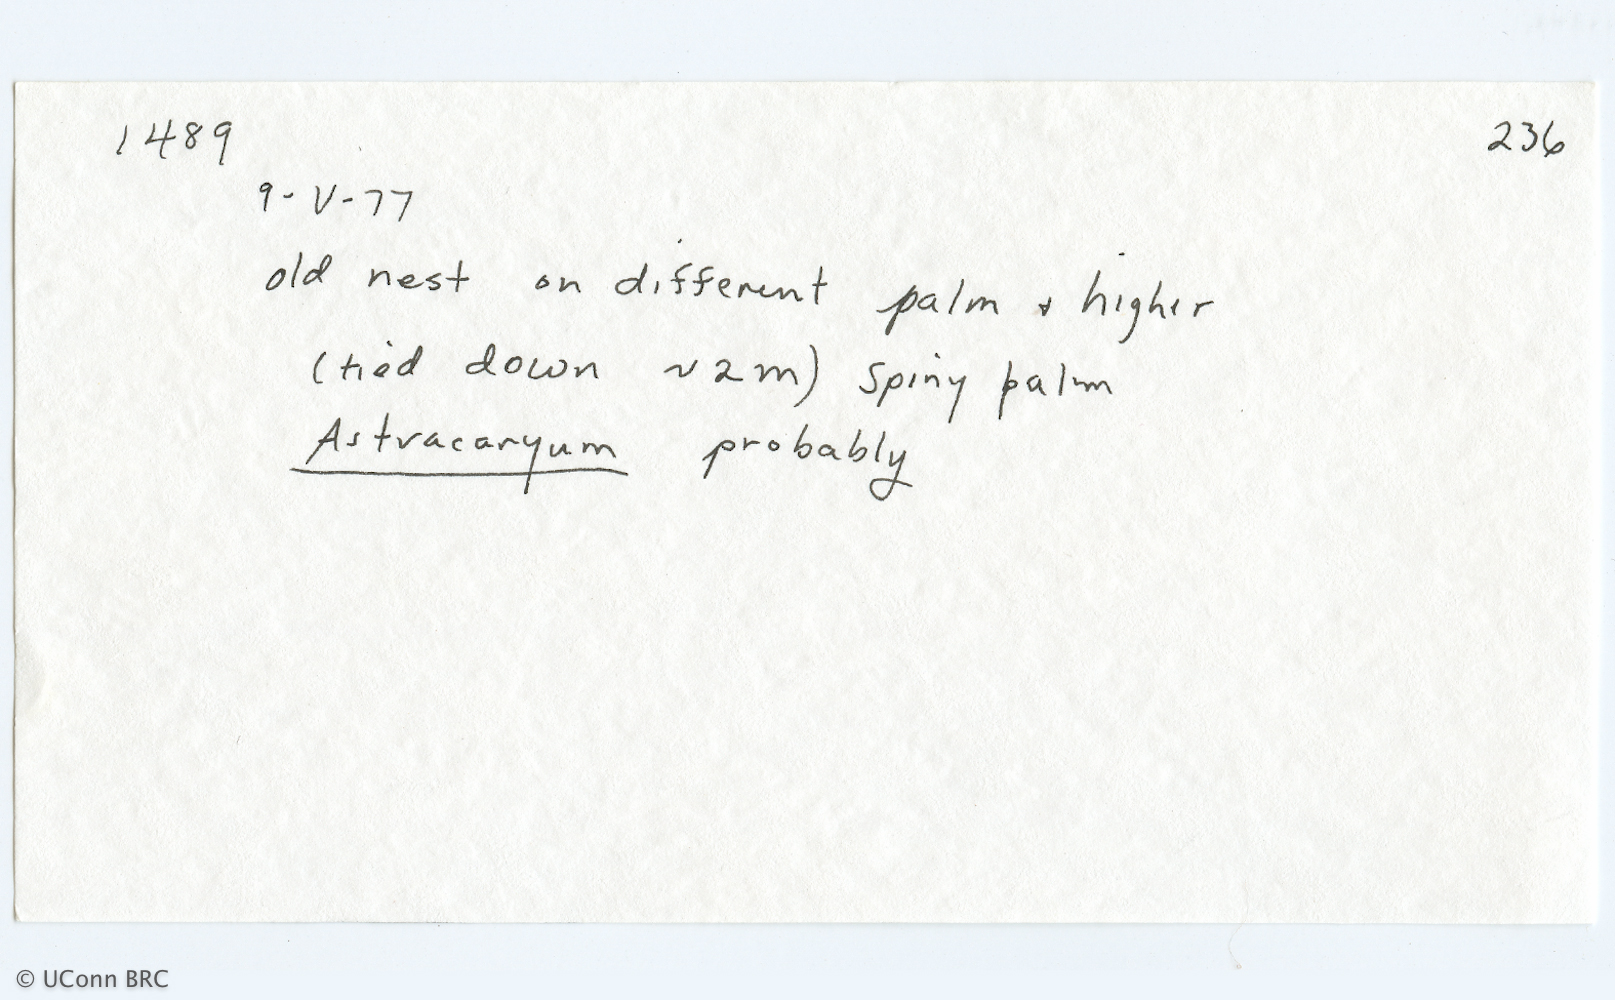 1489 236
9-V-77
old nest on different palm & higher
(tied down ~2m) spiny palm
Astracaryum probably
© UConn BRC